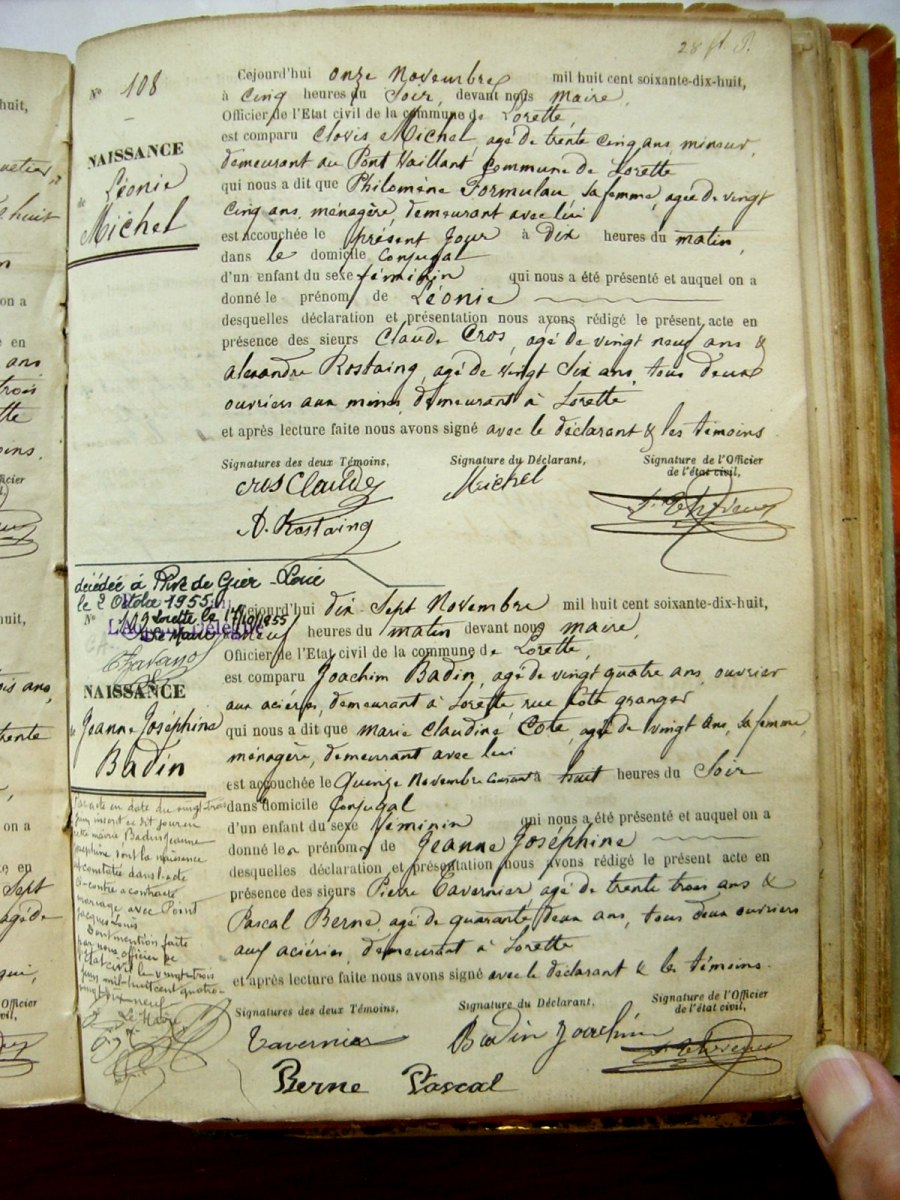 28 ft. P.
N° 108
NAISSANCE
de Léonie
Michel
Cejourd'hui onze Novembre mil huit cent soixante-dix-huit,
à Cinq heures du Soir, devant nous Maire,
Officier de l'Etat civil de la commune de Lorette,
est comparu Clovis Michel, agé de trente cinq ans, mineur,
demeurant au Pont Vaillant Commune de Lorette
qui nous a dit que Philomène Formulau, sa femme, agée de vingt
Cinq ans, ménagère, demeurant avec lui
est accouchée le présent jour à dix heures du matin,
dans le domicile Conjugal
d'un enfant du sexe féminin qui nous a été présenté et auquel on a
donné le prénom de Léonie
desquelles déclaration et présentation nous avons rédigé le présent acte en
présence des sieurs Claude Cros, agé de vingt neuf ans &
Alexandre Rostaing, agé de vingt Six ans, tous deux
ouvriers aux mines, demeurant à Lorette
et après lecture faite nous avons signé avec le déclarant & les témoins
Signatures des deux Témoins,
Signature du Déclarant,
Signature de l'Officier
de l'état civil,
Cros Claude
Michel
A. Rostaing
décédée à Rive de Gier - Loire
le 2 Octobre 1955
N° 109
Lorette le 17/10/1955
Le Maire
NAISSANCE
de Jeanne Joséphine
Badin
Cejourd'hui dix Sept Novembre mil huit cent soixante-dix-huit,
à neuf heures du matin devant nous maire,
Officier de l'Etat civil de la commune de Lorette,
est comparu Joachim Badin, agé de vingt quatre ans, ouvrier
aux aciéries, demeurant à Lorette, rue Côte granger
qui nous a dit que Marie Claudine Cote, agée de vingt ans, sa femme,
ménagère, demeurant avec lui
est accouchée le Quinze Novembre Courant à huit heures du Soir
dans domicile Conjugal
d'un enfant du sexe féminin qui nous a été présenté et auquel on a
donné les prénoms de Jeanne Joséphine
desquelles déclaration et présentation nous avons rédigé le présent acte en
présence des sieurs Pierre Tavernier agé de trente trois ans &
Pascal Berne, agé de quarante deux ans, tous deux ouvriers
aux aciéries, demeurant à Lorette
et après lecture faite nous avons signé avec le déclarant & les témoins.
Signatures des deux Témoins,
Signature du Déclarant,
Signature de l'Officier
de l'état civil,
Tavernier
Badin Joachim
Berne Pascal
Par acte en date du vingt trois
juin inscrit ce dit jour en
cette mairie Badin Jeanne
Joséphine dont la naissance
est constatée dans l'acte
ci-contre a contracté
mariage avec Point
Jacques Louis
Dont mention faite
par nous officier de
l'état civil le vingt trois
juin mil huit cent quatre-
vingt dix neuf
Le Maire